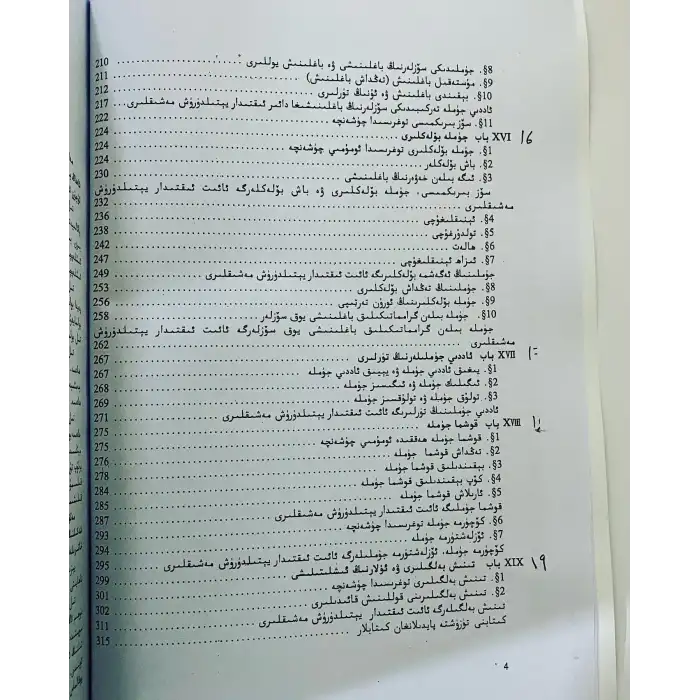 §8. جۈملىدىكى سۆزلەرنىڭ باغلىنىشى ۋە باغلىنىش يوللىرى 210
§9. مۇستەقىل باغلىنىش (تەڭداش باغلىنىش) 211
§10. بېقىندى باغلىنىش ۋە ئۇنىڭ تۈرلىرى 212
ئاددىي جۈملە تەركىبىدىكى سۆزلەرنىڭ باغلىنىشىغا دائىر ئىقتىدار يېتىلدۈرۈش مەشىقلىرى 217
§11. سۆز بىرىكمىسى توغرىسىدا چۈشەنچە 222
XVI باب جۈملە بۆلەكلىرى 224 16
§1. جۈملە بۆلەكلىرى توغرىسىدا ئومۇمىي چۈشەنچە 224
§2. باش بۆلەكلەر 224
§3. ئىگە بىلەن خەۋەرنىڭ باغلىنىشى 230
سۆز بىرىكمىسى، جۈملە بۆلەكلىرى ۋە باش بۆلەكلەرگە ئائىت ئىقتىدار يېتىلدۈرۈش
مەشىقلىرى 232
§4. ئېنىقلىغۇچى 236
§5. تولدۇرغۇچى 238
§6. ھالەت 242
§7. ئىزاھ ئېنىقلىغۇچى 247
جۈملىنىڭ ئەگەشمە بۆلەكلىرىگە ئائىت ئىقتىدار يېتىلدۈرۈش مەشىقلىرى 249
§8. جۈملىنىڭ تەڭداش بۆلەكلىرى 253
§9. جۈملە بۆلەكلىرىنىڭ ئورۇن تەرتىپى 256
§10. جۈملە بىلەن گرامماتىكىلىق باغلىنىشى يوق سۆزلەر 258
جۈملە بىلەن گرامماتىكىلىق باغلىنىشى يوق سۆزلەرگە ئائىت ئىقتىدار يېتىلدۈرۈش
مەشىقلىرى 262
XVII باب ئاددىي جۈملىلەرنىڭ تۈرلىرى 267
§1. يىغىق ئاددىي جۈملە ۋە يېيىق ئاددىي جۈملە 267
§2. ئىگىلىك جۈملە ۋە ئىگىسىز جۈملە 268
§3. تولۇق جۈملە ۋە تولۇقسىز جۈملە 269
ئاددىي جۈملىنىڭ تۈرلىرىگە ئائىت ئىقتىدار يېتىلدۈرۈش مەشىقلىرى 271
XVIII باب قوشما جۈملە 275
§1. قوشما جۈملە ھەققىدە ئومۇمىي چۈشەنچە 275
§2. تەڭداش قوشما جۈملە 276
§3. بېقىندىلىق قوشما جۈملە 278
§4. كۆپ بېقىندىلىق قوشما جۈملە 284
§5. ئارىلاش قوشما جۈملە 285
قوشما جۈملىگە ئائىت ئىقتىدار يېتىلدۈرۈش مەشىقلىرى 287
§6. كۆچۈرمە جۈملە توغرىسىدا چۈشەنچە 293
§7. ئۆزلەشتۈرمە جۈملە 294
كۆچۈرمە جۈملە، ئۆزلەشتۈرمە جۈملىلەرگە ئائىت ئىقتىدار يېتىلدۈرۈش مەشىقلىرى 295
XIX باب تىنىش بەلگىلىرى ۋە ئۇلارنىڭ ئىشلىتىلىشى 299 19
§1. تىنىش بەلگىلىرى توغرىسىدا چۈشەنچە 301
§2. تىنىش بەلگىلىرىنى قوللىنىش قائىدىلىرى 302
تىنىش بەلگىلەرگە ئائىت ئىقتىدار يېتىلدۈرۈش مەشىقلىرى 311
كىتابنى تۈزۈشتە پايدىلانغان كىتابلار 315
4